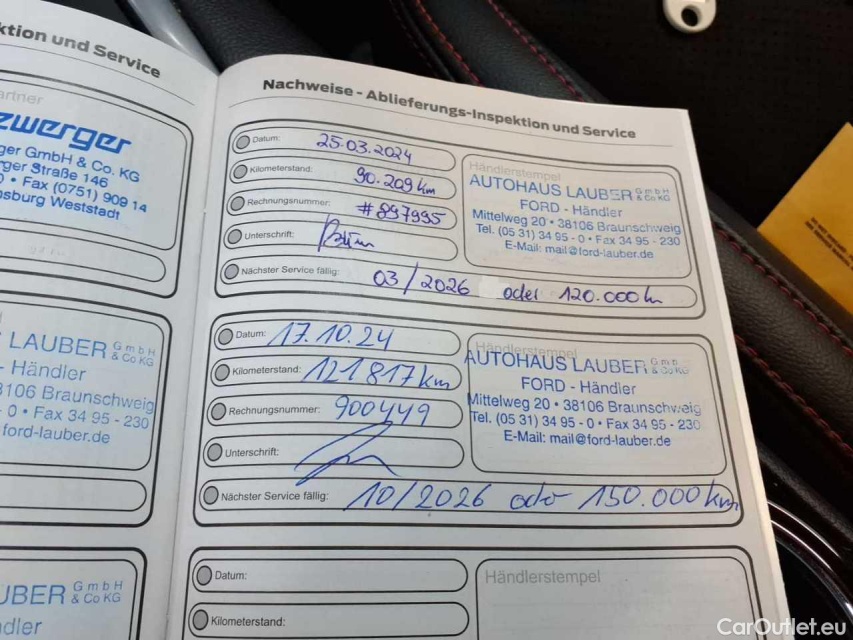 ktion und Service
artner
zwerger
ger GmbH & Co. KG
ger Straße 146
0 • Fax (0751) 909 14
nsburg Weststadt
LAUBER GmbH & Co KG
- Händler
8106 Braunschweig
- 0 • Fax 34 95 - 230
ford-lauber.de
UBER GmbH & Co KG
dler
Nachweise - Ablieferungs-Inspektion und Service
Datum: 25.03.2024
Kilometerstand: 90.209 km
Rechnungsnummer: #897995
Unterschrift:
Nächster Service fällig: 03/2026 oder 120.000 km
Händlerstempel
AUTOHAUS LAUBER GmbH & Co KG
FORD - Händler
Mittelweg 20 • 38106 Braunschweig
Tel. (05 31) 34 95 - 0 • Fax 34 95 - 230
E-Mail: mail@ford-lauber.de
Datum: 17.10.24
Kilometerstand: 121817 km
Rechnungsnummer: 900449
Unterschrift:
Nächster Service fällig: 10/2026 oder 150.000 km
Händlerstempel
AUTOHAUS LAUBER GmbH & Co KG
FORD - Händler
Mittelweg 20 • 38106 Braunschweig
Tel. (05 31) 34 95 - 0 • Fax 34 95 - 230
E-Mail: mail@ford-lauber.de
Datum:
Kilometerstand:
Händlerstempel
CarOutlet.eu